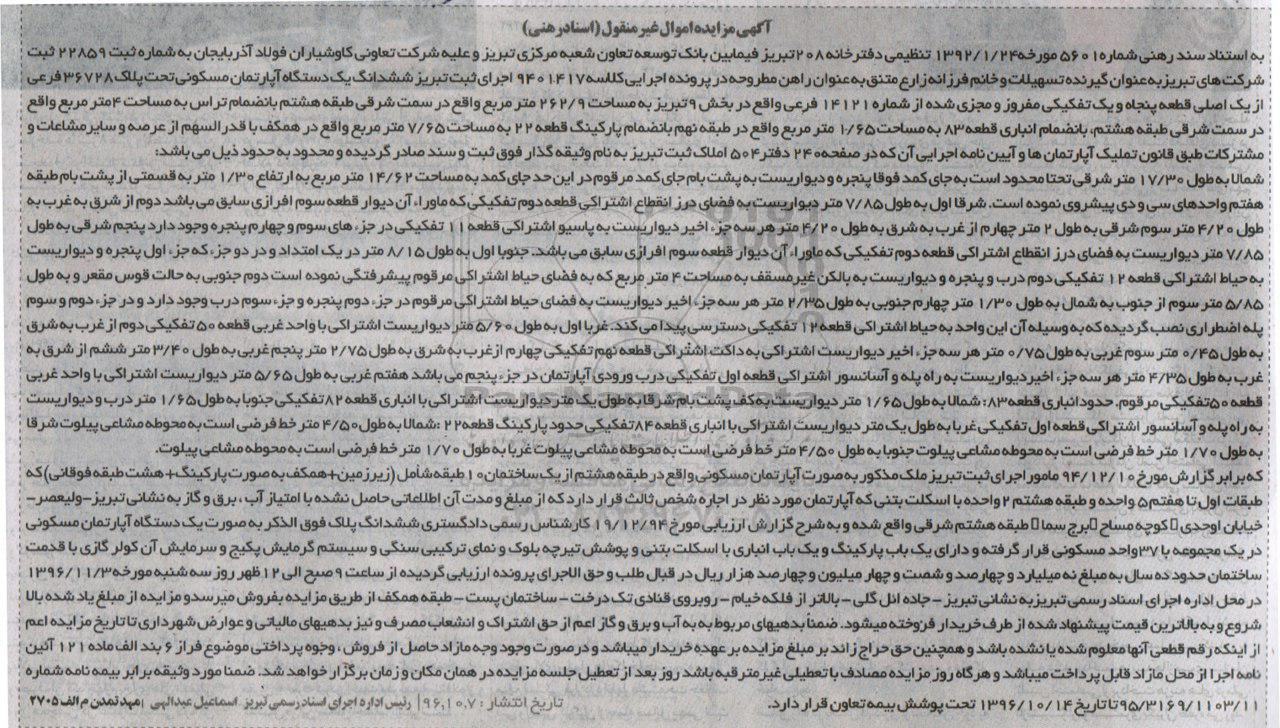 آگهی مزایده اموال غیر منقول (اسناد رهنی)
به استناد سند رهنی شماره ۵۶۰۱ مورخه ۱۳۹۲/۱/۲۴ تنظیمی دفترخانه ۲۰۸ تبریز فیمابین بانک توسعه تعاون شعبه مرکزی تبریز و علیه شرکت تعاونی کاوشیاران فولاد آذربایجان به شماره ثبت ۲۲۸۵۹ ثبت
شرکت های تبریز به عنوان گیرنده تسهیلات و خانم فرزانه زارع متنق به عنوان راهن مطروحه در پرونده اجرایی کلاسه ۹۴۰۱۴۱۷ اجرای ثبت تبریز ششدانگ یک دستگاه آپارتمان مسکونی تحت پلاک ۳۶۷۲۸ فرعی
از یک اصلی قطعه پنجاه و یک تفکیکی مفروز و مجزی شده از شماره ۱۴۱۲۱ فرعی واقع در بخش ۹ تبریز به مساحت ۲۶۲/۹ متر مربع واقع در سمت شرقی طبقه هشتم بانضمام تراس به مساحت ۴ متر مربع واقع
در سمت شرقی طبقه هشتم، بانضمام انباری قطعه ۸۳ به مساحت ۱/۶۵ متر مربع واقع در طبقه نهم بانضمام پارکینگ قطعه ۲۲ به مساحت ۷/۶۵ متر مربع واقع در همکف با قدرالسهم از عرصه و سایر مشاعات و
مشترکات طبق قانون تملیک آپارتمان ها و آیین نامه اجرایی آن که در صفحه ۲۴۰ دفتر ۵۰۴ املاک ثبت تبریز به نام وثیقه گذار فوق ثبت و سند صادر گردیده و محدود به حدود ذیل می باشد:
شمالا به طول ۱۷/۳۰ متر شرقی تحتا محدود است به جای کمد فوقا پنجره و دیواریست به پشت بام جای کمد مرقوم در این حد جای کمد به مساحت ۱۴/۶۲ متر مربع به ارتفاع ۱/۳۰ متر به قسمتی از پشت بام طبقه
هفتم واحدهای سی و دی پیشروی نموده است. شرقا اول به طول ۷/۸۵ متر دیواریست به فضای درز انقطاع اشتراکی قطعه دوم تفکیکی که ماوراء آن دیوار قطعه سوم افرازی سابق می باشد دوم از شرق به غرب به
طول ۴/۲۰ متر سوم شرقی به طول ۲ متر چهارم از غرب به شرق به طول ۴/۲۰ متر هر سه جزء اخیر دیواریست به پاسیو اشتراکی قطعه ۱۱ تفکیکی در جزء های سوم و چهارم پنجره وجود دارد پنجم شرقی به طول
۷/۸۵ متر دیواریست به فضای درز انقطاع اشتراکی قطعه دوم تفکیکی که ماوراء آن دیوار قطعه سوم افرازی سابق می باشد. جنوبا اول به طول ۸/۱۵ متر در یک امتداد و در دو جزء که جزء اول پنجره و دیواریست
به حیاط اشتراکی قطعه ۱۲ تفکیکی دوم درب و پنجره و دیواریست به بالکن غیرمسقف به مساحت ۴ متر مربع که به فضای حیاط اشتراکی مرقوم پیشرفتگی نموده است دوم جنوبی به حالت قوس مقعر و به طول
۵/۸۵ متر سوم از جنوب به شمال به طول ۱/۳۰ متر چهارم جنوبی به طول ۲/۳۵ متر هر سه جزء اخیر دیواریست به فضای حیاط اشتراکی مرقوم در جزء دوم پنجره و جزء سوم درب وجود دارد و در جزء دوم و سوم
پله اضطراری نصب گردیده که به وسیله آن این واحد به حیاط اشتراکی قطعه ۱۲ تفکیکی دسترسی پیدا می کند. غربا اول به طول ۵/۶۰ متر دیواریست اشتراکی با واحد غربی قطعه ۵۰ تفکیکی دوم از غرب به شرق
به طول ۰/۴۵ متر سوم غربی به طول ۰/۷۵ متر هر سه جزء اخیر دیواریست اشتراکی به داکت اشتراکی قطعه نهم تفکیکی چهارم از غرب به شرق به طول ۲/۷۵ متر پنجم غربی به طول ۳/۴۰ متر ششم از شرق به
غرب به طول ۴/۳۵ متر هر سه جزء اخیر دیواریست به راه پله و آسانسور اشتراکی قطعه اول تفکیکی درب ورودی آپارتمان در جزء پنجم می باشد هفتم غربی به طول ۵/۶۵ متر دیواریست اشتراکی با واحد غربی
قطعه ۵۰ تفکیکی مرقوم. حدود انباری قطعه ۸۳: شمالا به طول ۱/۶۵ متر دیواریست به کف پشت بام شرقا به طول یک متر دیواریست اشتراکی با انباری قطعه ۸۲ تفکیکی جنوبا به طول ۱/۶۵ متر درب و دیواریست
به راه پله و آسانسور اشتراکی قطعه اول تفکیکی غربا به طول یک متر دیواریست اشتراکی با انباری قطعه ۸۴ تفکیکی حدود پارکینگ قطعه ۲۲ :شمالا به طول ۴/۵۰ متر خط فرضی است به محوطه مشاعی پیلوت شرقا
به طول ۱/۷۰ متر خط فرضی است به محوطه مشاعی پیلوت جنوبا به طول ۴/۵۰ متر خط فرضی است به محوطه مشاعی پیلوت غربا به طول ۱/۷۰ متر خط فرضی است به محوطه مشاعی پیلوت.
که برابر گزارش مورخ ۹۴/۱۲/۱۰ مامور اجرای ثبت تبریز ملک مذکور به صورت آپارتمان مسکونی واقع در طبقه هشتم از یک ساختمان ۱۰ طبقه شامل (زیرزمین+همکف به صورت پارکینگ+هشت طبقه فوقانی) که
طبقات اول تا هفتم ۵ واحده و طبقه هشتم ۲ واحده با اسکلت بتنی که آپارتمان مورد نظر در اجاره شخص ثالث قرار دارد که از مبلغ و مدت آن اطلاعاتی حاصل نشده با امتیاز آب، برق و گاز به نشانی تبریز-ولیعصر-
خیابان اوحدی کوچه مساح برج سما طبقه هشتم شرقی واقع شده و به شرح گزارش ارزیابی مورخ ۱۹/۱۲/۹۴ کارشناس رسمی دادگستری ششدانگ پلاک فوق الذکر به صورت یک دستگاه آپارتمان مسکونی
در یک مجموعه با ۳۷ واحد مسکونی قرار گرفته و دارای یک باب پارکینگ و یک باب انباری با اسکلت بتنی و پوشش تیرچه بلوک و نمای ترکیبی سنگی و سیستم گرمایش پکیج و سرمایش آن کولر گازی با قدمت
ساختمان حدود ده سال به مبلغ نه میلیارد و چهارصد و شصت و چهار میلیون و چهارصد هزار ریال در قبال طلب و حق الاجرای پرونده ارزیابی گردیده از ساعت ۹ صبح الی ۱۲ ظهر روز سه شنبه مورخه ۱۳۹۶/۱۱/۳
در محل اداره اجرای اسناد رسمی تبریز به نشانی تبریز - جاده ائل گلی - بالاتر از فلکه خیام - روبروی قنادی تک درخت - ساختمان پست - طبقه همکف از طریق مزایده بفروش میرسد و مزایده از مبلغ یاد شده بالا
شروع و به بالاترین قیمت پیشنهاد شده از طرف خریدار فروخته میشود. ضمناً بدهیهای مربوط به به آب و برق و گاز اعم از حق اشتراک و انشعاب مصرف و نیز بدهیهای مالیاتی و عوارض شهرداری تا تاریخ مزایده اعم
از اینکه رقم قطعی آنها معلوم شده یا نشده باشد و همچنین حق حراج زائد بر مبلغ مزایده بر عهده خریدار میباشد و درصورت وجود وجه مازاد حاصل از فروش، وجوه پرداختی موضوع فراز ۶ بند الف ماده ۱۲۱ آئین
نامه اجرا از محل مازاد قابل پرداخت میباشد و هرگاه روز مزایده مصادف با تعطیلی غیر مترقبه باشد روز بعد از تعطیل جلسه مزایده در همان مکان و زمان برگزار خواهد شد. ضمنا مورد وثیقه برابر بیمه نامه شماره
۹۵/۳۱۶۹/۱۱۰۳/۱۱ تا تاریخ ۱۳۹۶/۱۰/۱۴ تحت پوشش بیمه تعاون قرار دارد.
تاریخ انتشار : ۹۶,۱۰,۷ | رئیس اداره اجرای اسناد رسمی تبریز اسماعیل عبدالهی | مهد تمدن م الف ۲۷۰۵